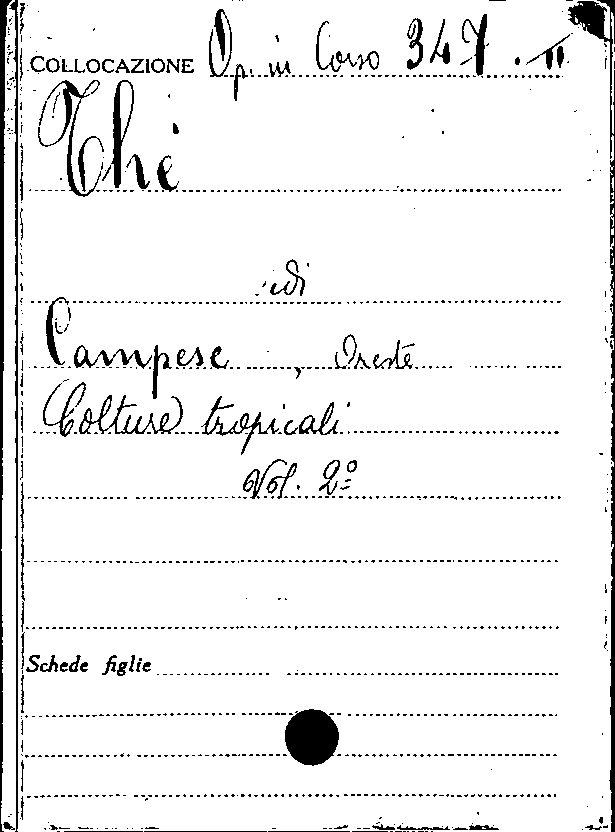 COLLOCAZIONE Op. in Corso 347. II
Thè
vedi
Campese, Oreste
Colture tropicali
Vol. 2º
Schede figlie